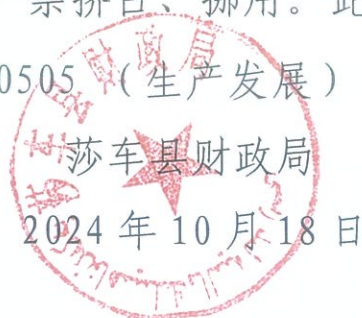 禁挤占、挪用。此
0505（生产发展）
莎车县财政局
2024年10月18日